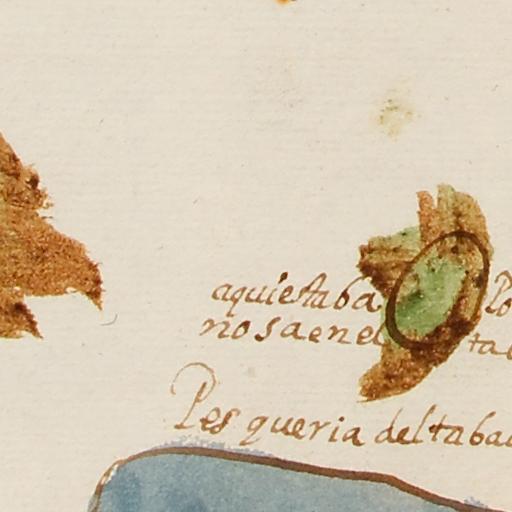 aquiestaba Po
nosaenel ta
Pesqueria deltaba